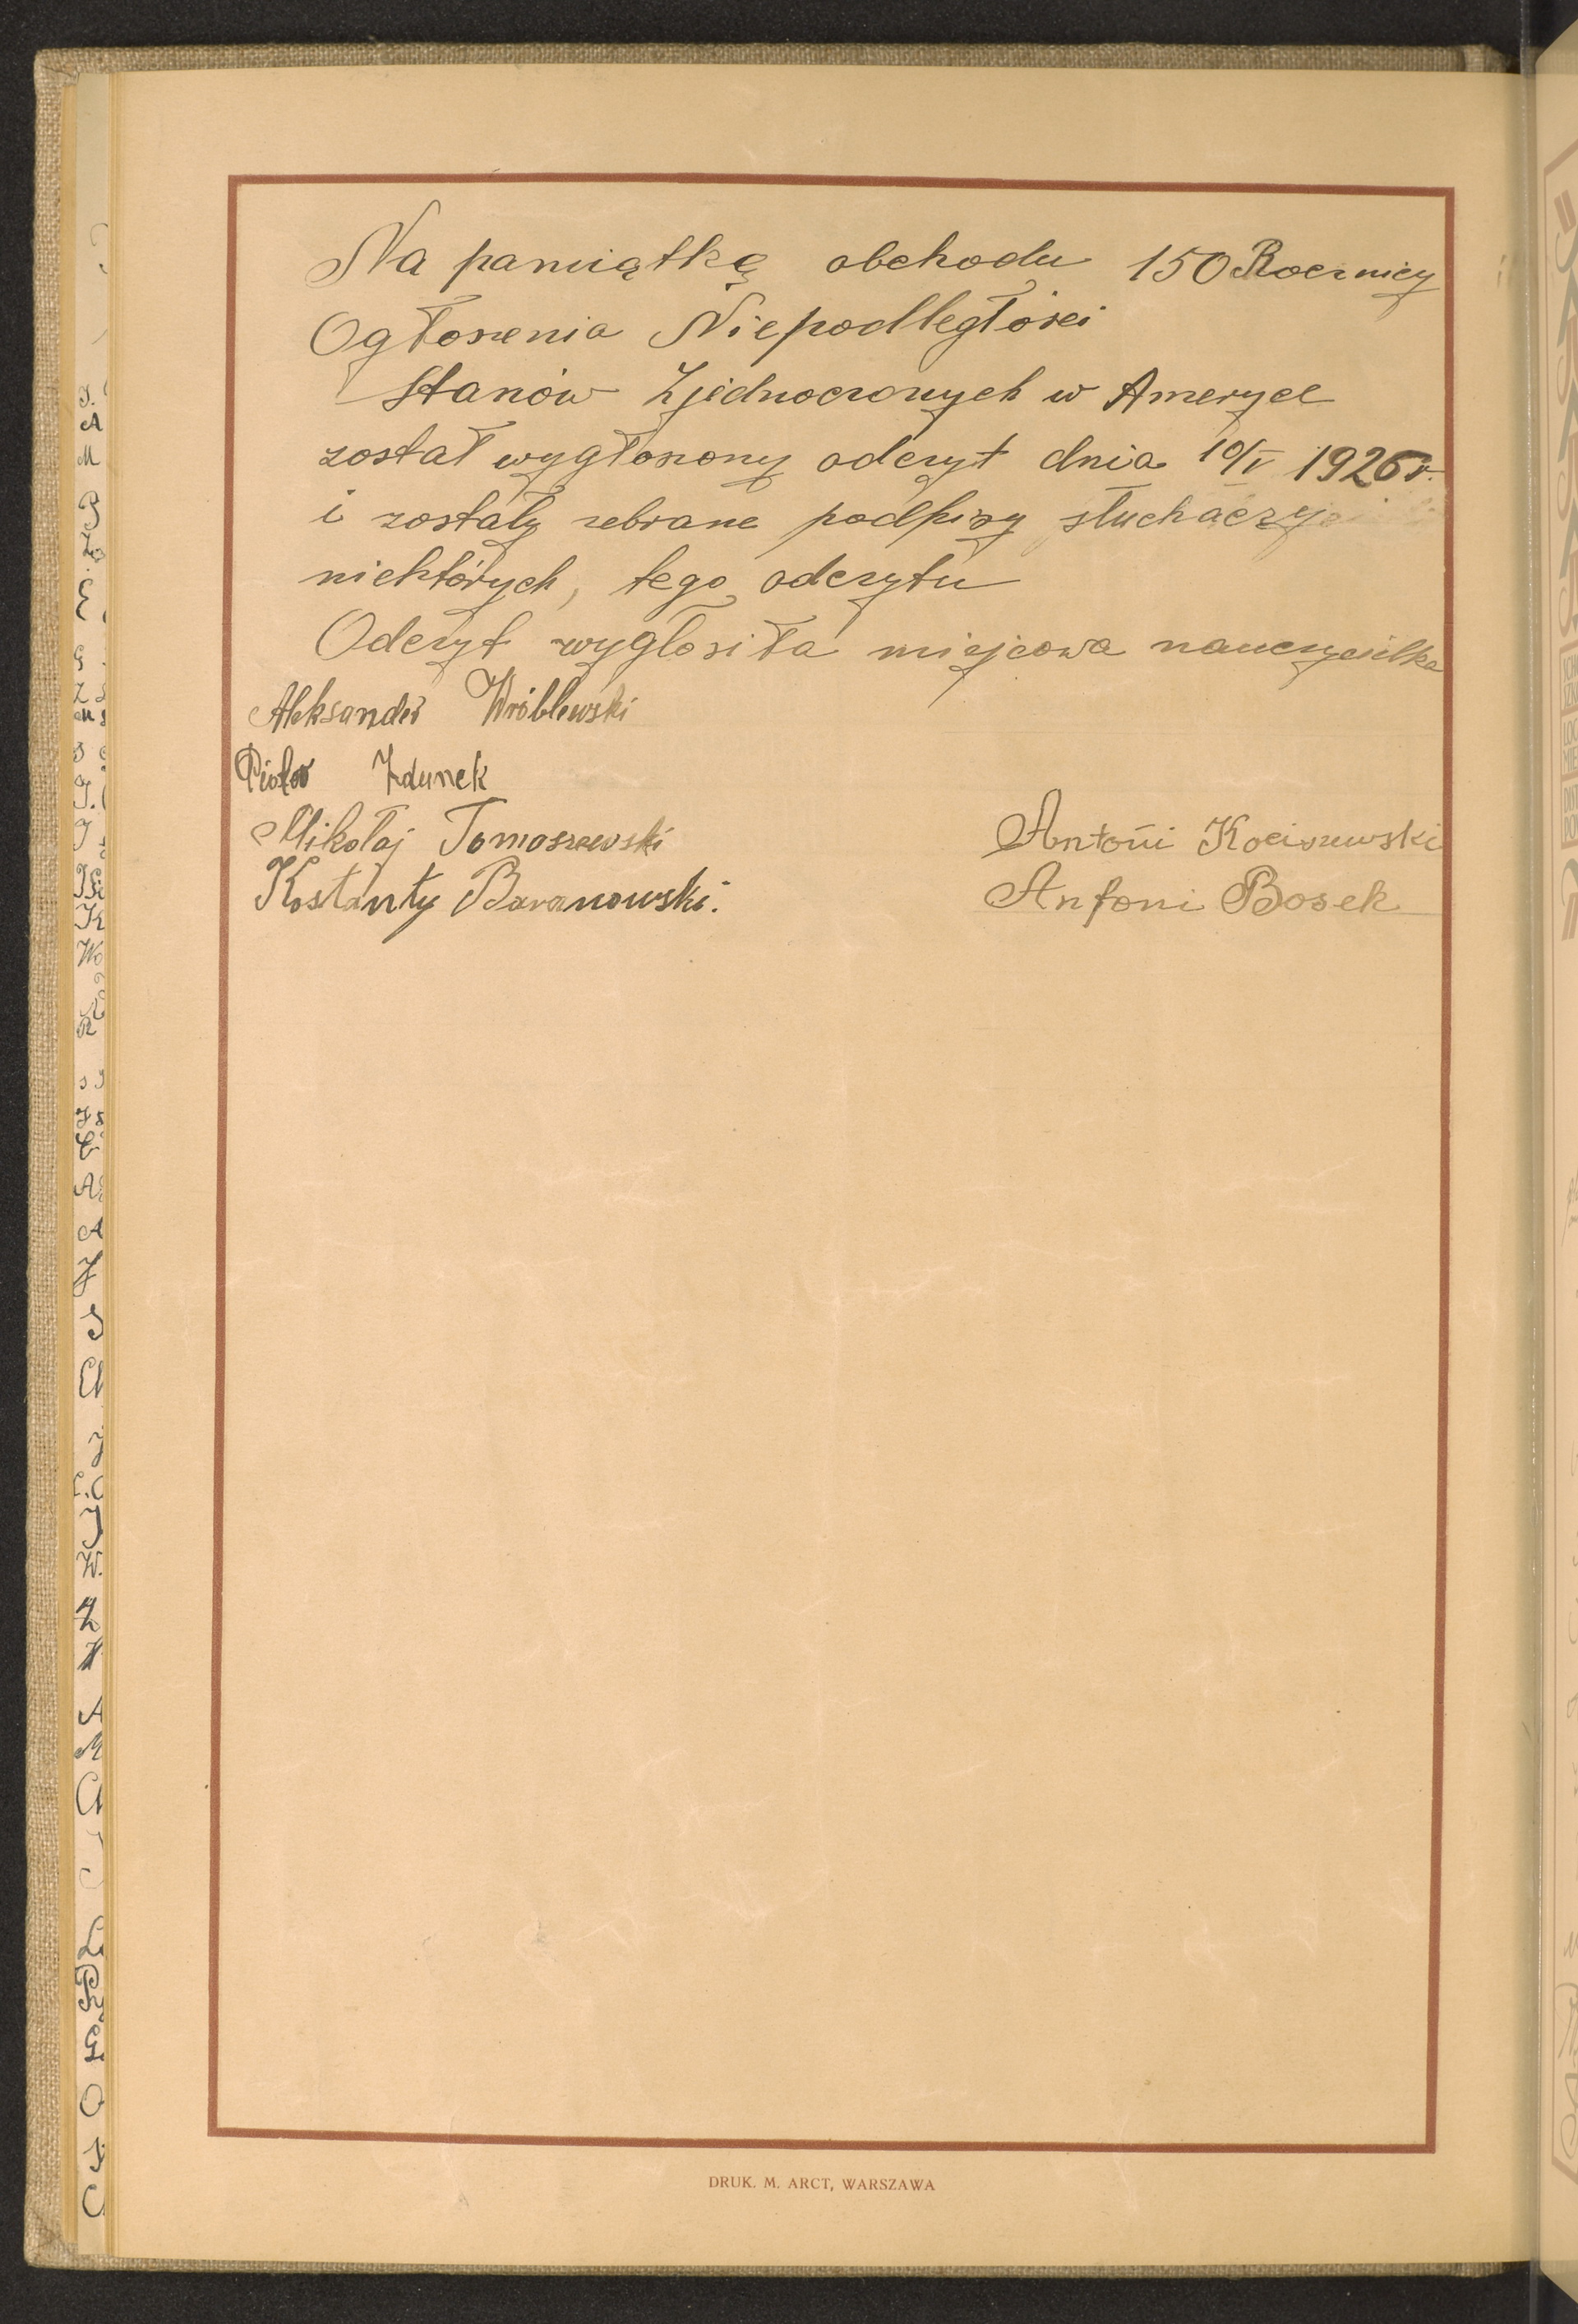 Na pamiątkę obchodu 150 Rocznicy
Ogłoszenia Niepodległości
Stanów Zjednoczonych w Ameryce
został wygłoszony odczyt dnia 10/V 1926 r.
i zostały zebrane podpisy słuchaczy
niektórych, tego odczytu
Odczyt wygłosiła miejscowa nauczycielka
Aleksander Wróblewski
Piotr Zdunek
Mikołaj Tomaszewski
Antoni Kociszewski
Kostanty Baranowski.
Antoni Bosek
DRUK. M. ARCT, WARSZAWA